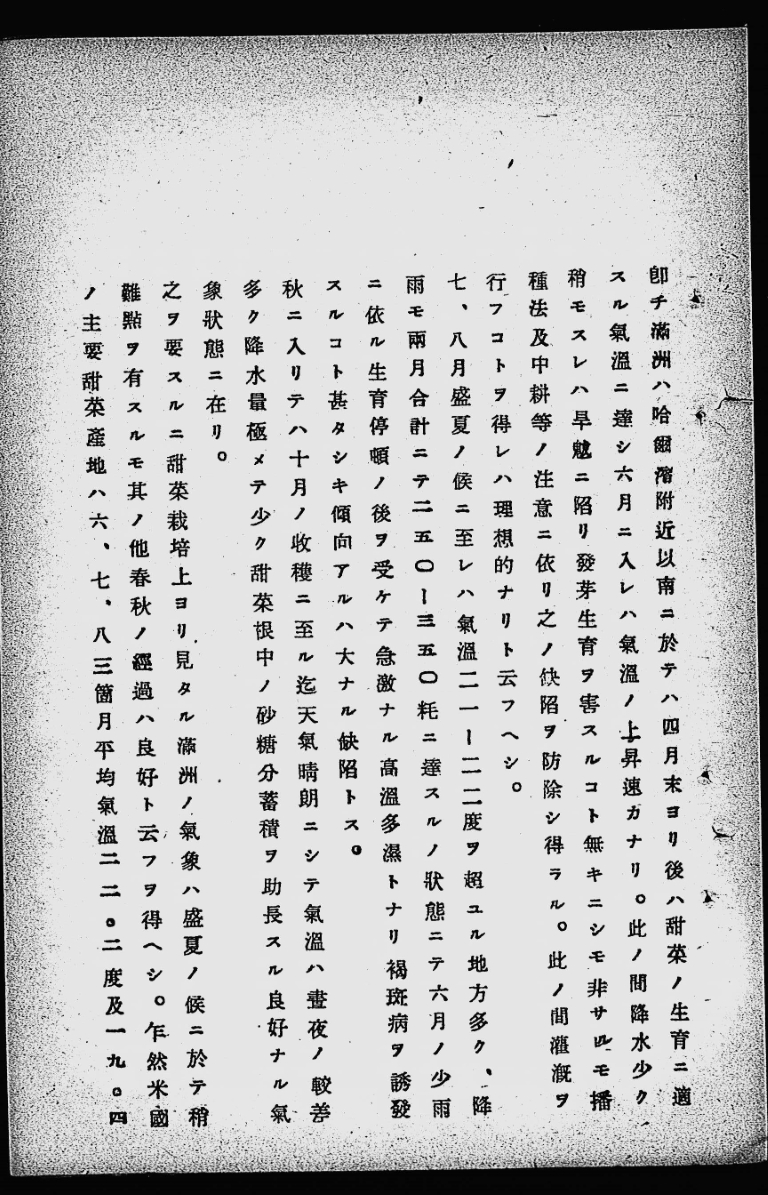 卽チ滿洲ハ哈爾濱附近以南ニ於テハ四月末ヨリ後ハ甜菜ノ生育ニ適
スル氣溫ニ達シ六月ニ入レハ氣溫ノ上昇速カナリ。此ノ間降水少ク
稍モスレハ旱魃ニ陷リ發芽生育ヲ害スルコト無キニシモ非サルモ播
種法及中耕等ノ注意ニ依リ之ノ缺陷ヲ防除シ得ラル。此ノ間灌漑ヲ
行フコトヲ得レハ理想的ナリト云フヘシ。
七、八月盛夏ノ候ニ至レハ氣溫二一ー二二度ヲ超ユル地方多ク、降
雨モ兩月合計ニテ二五〇ー三五〇粍ニ達スルノ狀態ニテ六月ノ少雨
ニ依ル生育停頓ノ後ヲ受ケテ急激ナル高溫多濕トナリ褐斑病ヲ誘發
スルコト甚タシキ傾向アルハ大ナル缺陷トス。
秋ニ入リテハ十月ノ收穫ニ至ル迄天氣晴朗ニシテ氣溫ハ晝夜ノ較差
多ク降水量極メテ少ク甜菜根中ノ砂糖分蓄積ヲ助長スル良好ナル氣
象狀態ニ在リ。
之ヲ要スルニ甜菜栽培上ヨリ見タル滿洲ノ氣象ハ盛夏ノ候ニ於テ稍
難點ヲ有スルモ其ノ他春秋ノ經過ハ良好ト云フヲ得ヘシ。乍然米國
ノ主要甜菜產地ハ六、七、八三箇月平均氣溫二二。二度及一九。四